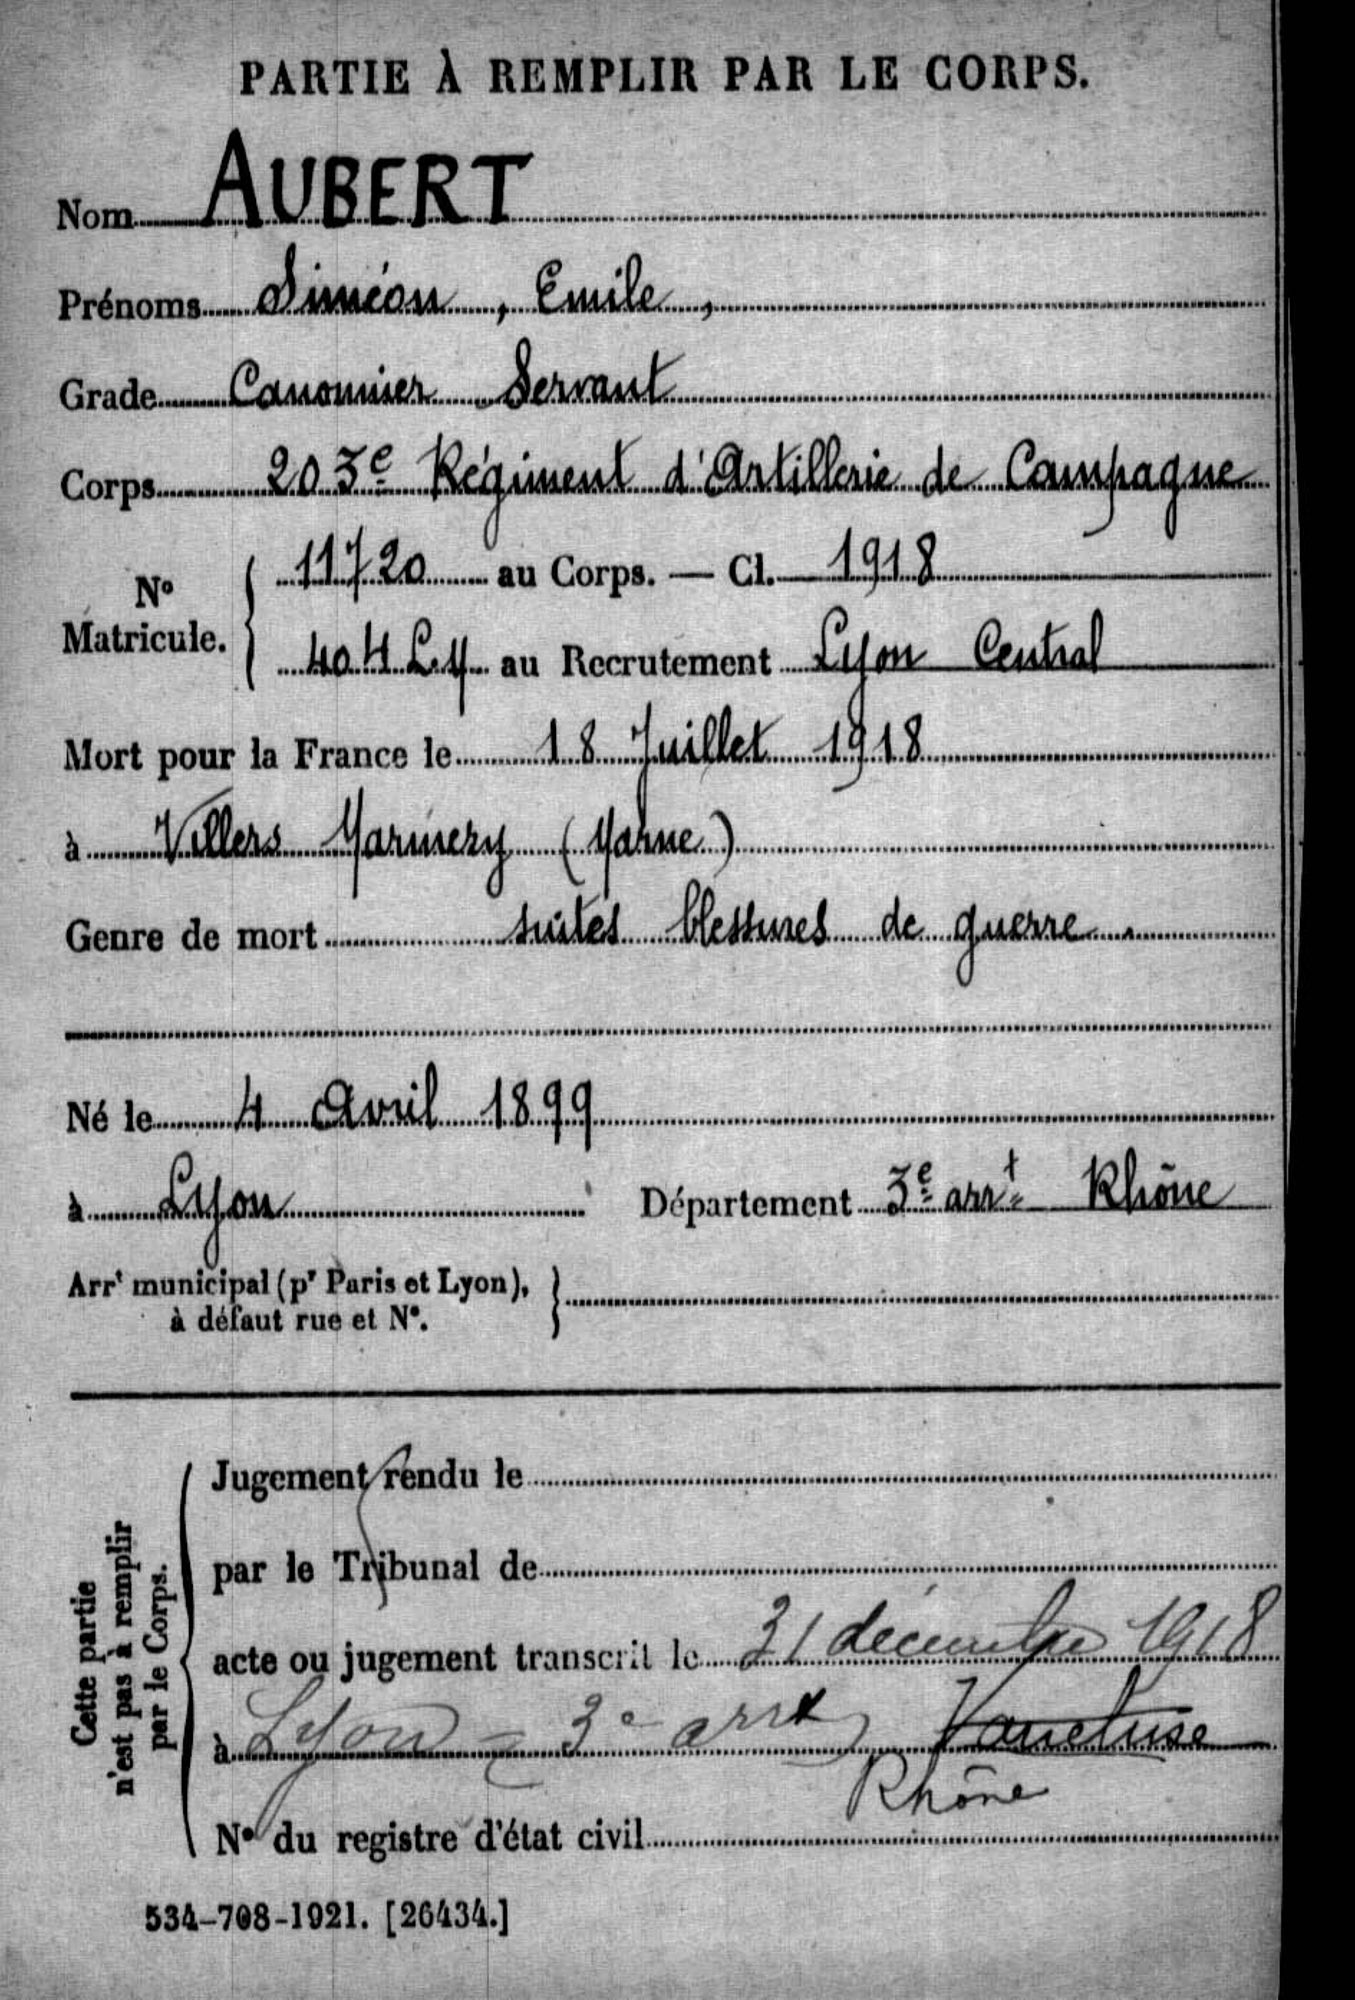 PARTIE À REMPLIR PAR LE CORPS.
Nom AUBERT
Prénoms Siméon, Emile,
Grade Canonnier Servant
Corps 203e Régiment d'Artillerie de Campagne
No Matricule. { 11720 au Corps. — Cl. 1918
404 L.M au Recrutement Lyon Central
Mort pour la France le 18 Juillet 1918
à Villers Marmery (Marne)
Genre de mort suites blessures de guerre.
Né le 4 Avril 1899
à Lyon Département 3e arrt Rhône
Arrt municipal (pr Paris et Lyon), }
à défaut rue et No.
Cette partie
n'est pas à remplir
par le Corps.
Jugement rendu le
par le Tribunal de
acte ou jugement transcrit le 31 décembre 1918
à Lyon - 3e arrt Vaucluse
Rhône
No du registre d'état civil
534-708-1921. [26434.]